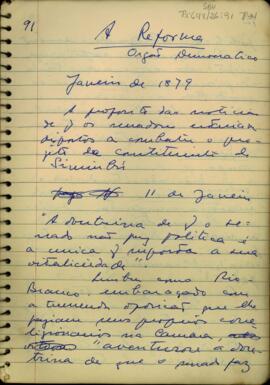 91
A Reforma
Orgão Democratico
Janeiro de 1879
A proposito das noticias
de q os senadores estavam
dispostos a combater o pro-
jeto da constituinte de
Sinimbú
11 de Janeiro
"A doutrina de q o se-
nado não faz politica é
a unica q importa a sua
vitaliciedade".
Lembra como Rio-
Branco embaraçado com
a tremenda oposição que lhe
faziam seus proprios corre-
ligionarios na Camara,
"aventurou a dou-
trina de que o senado faz